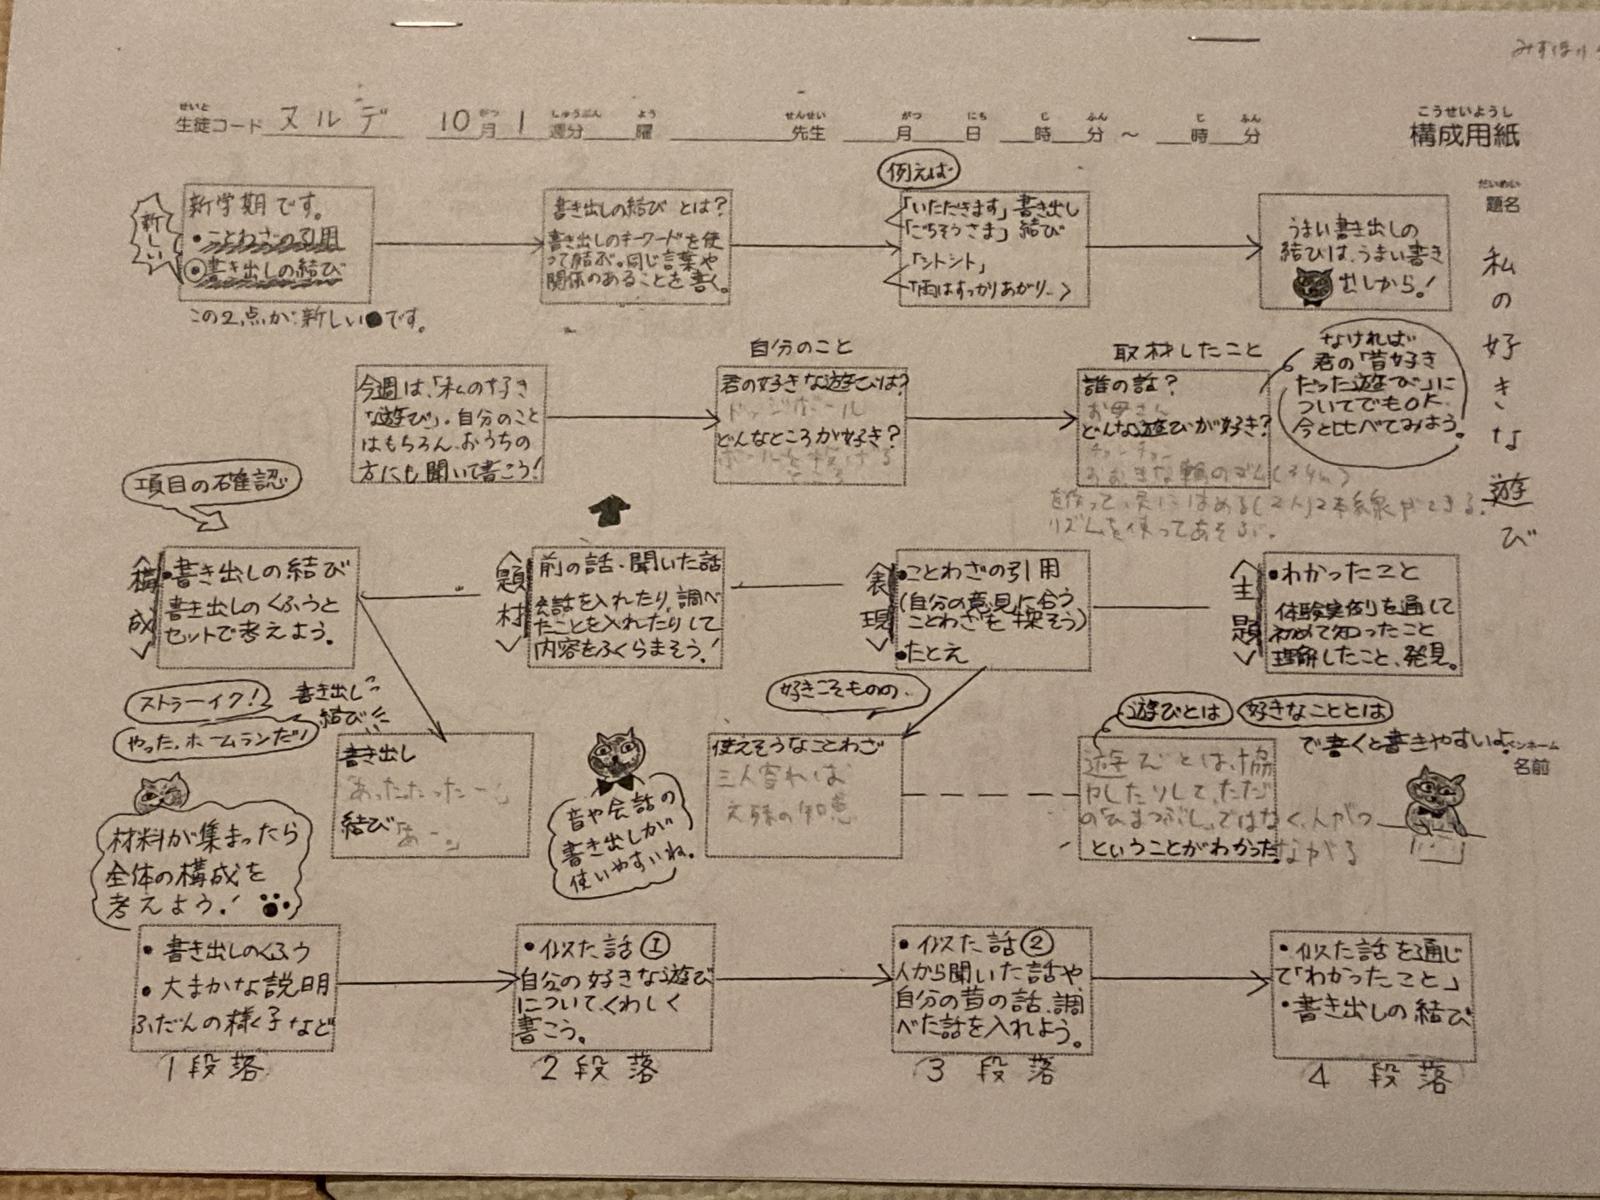 みすほり
せいと がつ しゅうぶん よう せんせい がつ にち じ ふん じ ふん こうせいようし
生徒コード ヌルデ 10月1週分 曜 先生 月 日 時 分 ～ 時 分 構成用紙
だいめい
題名
私の好きな遊び
新しい
新学期です。
・ことわざの引用
◎書き出しの結び
この2点が新しい●です。
書き出しの結びとは？
書き出しのキーワードを使
って結ぶ。同じ言葉や
関係のあることを書く。
例えば
「いただきます」書き出し
「ごちそうさま」結び
「シトシト」
「雨はすっかりあがり…」
うまい書き出しの
結びは、うまい書き
出しから！
今週は、「私の好き
な遊び」。自分のこと
はもちろん、おうちの
方にも聞いて書こう！
自分のこと
君の好きな遊びは？
ドッジボール
どんなところが好き？
ボールを投げる
ところ
取材したこと
誰の話？
お母さん
どんな遊びが好き？
おおきな輪のゴム
を作って、足にはめる(2人)2本線ができる。
リズムを使ってあそぶ。
なければ
君の「昔好き
だった遊び」に
ついてでもOK
今と比べてみよう。
項目の確認
〈構成〉
・書き出しの結び
書き出しのくふうと
セットで考えよう。
〈題材〉
前の話・聞いた話
会話を入れたり、調べ
たことを入れたりして
内容をふくらまそう！
〈表現〉
・ことわざの引用
(自分の意見に合う
ことわざを探そう)
・たとえ
〈主題〉
・わかったこと
体験実例を通して
初めて知ったこと
理解したこと、発見。
ストラーイク！
書き出し
やった、ホームランだ！
結び
書き出し
「あったたったー」
結び「あー。」
音や会話の
書き出しが
使いやすいね。
好きこそものの…
使えそうなことわざ
三人寄れば
文殊の知恵
遊びとは 好きなこととは
で書くと書きやすいよ
遊びとは、協
力したりして、ただ
の「ひまつぶし」ではなく、人がつ
ながる
ということがわかった
ペンネーム
名前
材料が集まったら
全体の構成を
考えよう！
・書き出しのくふう
・大まかな説明
ふだんの様子など
1段落
・似た話①
自分の好きな遊び
について、くわしく
書こう。
2段落
・似た話②
人から聞いた話や、
自分の昔の話、調
べた話を入れよう。
3段落
・似た話を通じ
て「わかったこと」
・書き出しの結び
4段落